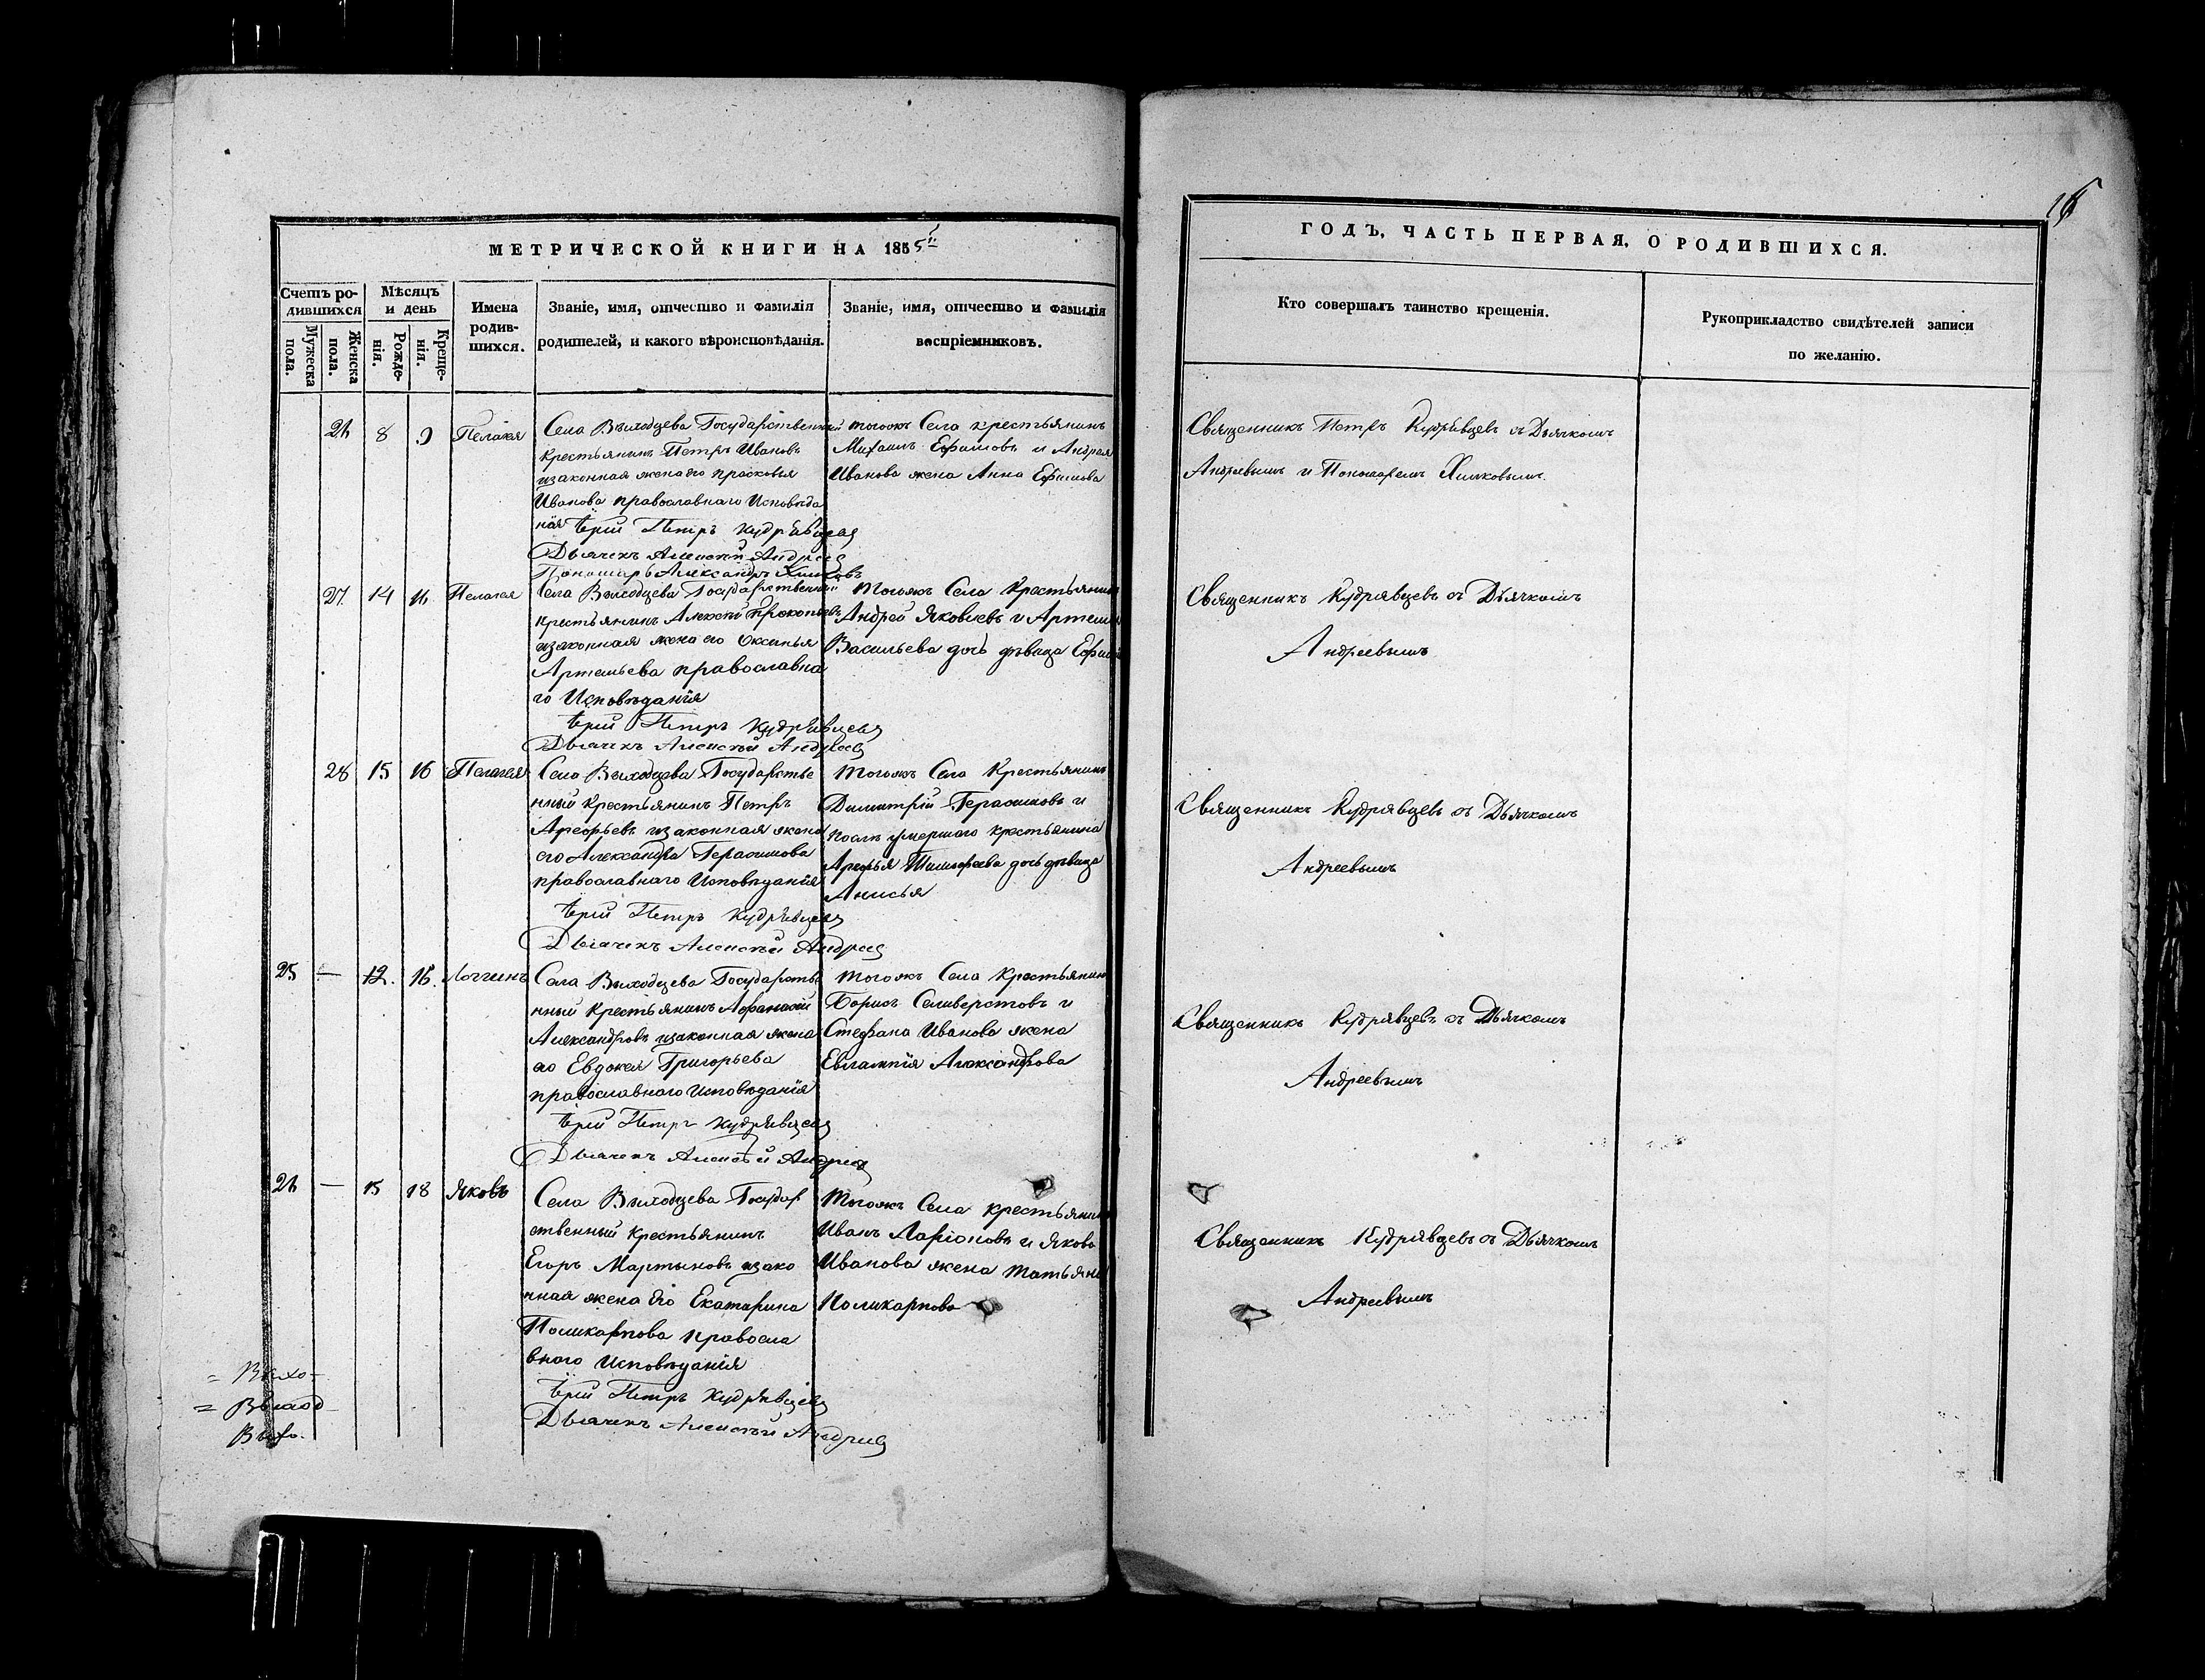 МЕТРИЧЕСКОЙ КНИГИ НА 1855й
Счетъ ро-
дившихся
Мужеска пола.
Женска пола.
Мѣсяцъ
и день
Рожде-
нія.
Креще-
нія.
Имена
родив-
шихся.
Званіе, имя, отчество и фамилія
родителей, и какого вѣроисповѣданія.
Званіе, имя, отчество и фамилія
воспріемниковъ.
26 8 9 Пелагея
Села Выходцева Государственный
крестьянинъ Петръ Ивановъ
изаконная жена его Прасковья
Иванова православнаго Исповѣда
нія Іерей Петръ Кудрявцевъ
Дьячекъ Алексѣй Андреевъ
Пономарь Александръ Химковъ
тогожъ Села крестьянинъ
Михаилъ Ефимовъ и Андрея
Иванова жена Анна Ефимова
27. 14 16 Пелагея
Села Выходцева Государственный
крестьянинъ Алексѣй Прокопьевъ
изаконная жена его Оксинья
Артемьева православна
го Исповѣданія
Іерей Петръ Кудрявцевъ
Дьячекъ Алексѣй Андреевъ
Тогожъ Села Крестьянинъ
Андрей Яковлевъ и Артемія
Васильева дочь дѣвица
28 15 16 Пелагея
Села Выходцева Государстве
нный крестьянинъ Петръ
Арефьевъ изаконная жена
его Александра Герасимова
православнаго Исповѣданія
Іерей Петръ Кудрявцевъ
Дьячекъ Алексѣй Андреевъ
Тогожъ Села Крестьянинъ
Димитрій Герасимовъ и
послѣ умершаго крестьянина
Арефья Тимофеева дочь дѣвица
Анисья
25 — 12. 16. Логгинъ
Села Выходцева Государстве
нный Крестьянинъ Афанасій
Александровъ изаконная жена
его Евдокея Григорьева
православнаго Исповѣданія
Іерей Петръ Кудрявцевъ
Дьячекъ Алексѣй Андреевъ
Тогожъ Села Крестьянинъ
Борисъ Селиверстовъ и
Стефана Иванова жена
Евлампія Александрова
26 — 15 18 Яковъ
Села Выходцева Государ
ственный крестьянинъ
Егоръ Мартыновъ изако
нная жена его Екатерина
Поликарпова Правосла
внаго Исповѣданія
Іерей Петръ Кудрявцевъ
Дьячекъ Алексѣй Андреевъ
Тогожъ Села крестьянинъ
Иванъ Ларіоновъ и Якова
Иванова жена Татьяна
Поликарпова
= Выхо-
= Выход
Выхо.
16
ГОДЪ, ЧАСТЬ ПЕРВАЯ, О РОДИВШИХСЯ.
Кто совершалъ таинство крещенія.
Рукоприкладство свидѣтелей записи
по желанію.
Священникъ Петръ Кудрявцевъ съ Дьячкомъ
Андреевымъ и Пономаремъ Химковымъ.
Священникъ Кудрявцевъ съ Дьячкомъ
Андреевымъ
Священникъ Кудрявцевъ съ Дьячкомъ
Андреевымъ
Священникъ Кудрявцевъ съ Дьячкомъ
Андреевымъ
Священникъ Кудрявцевъ съ Дьячкомъ
Андреевымъ